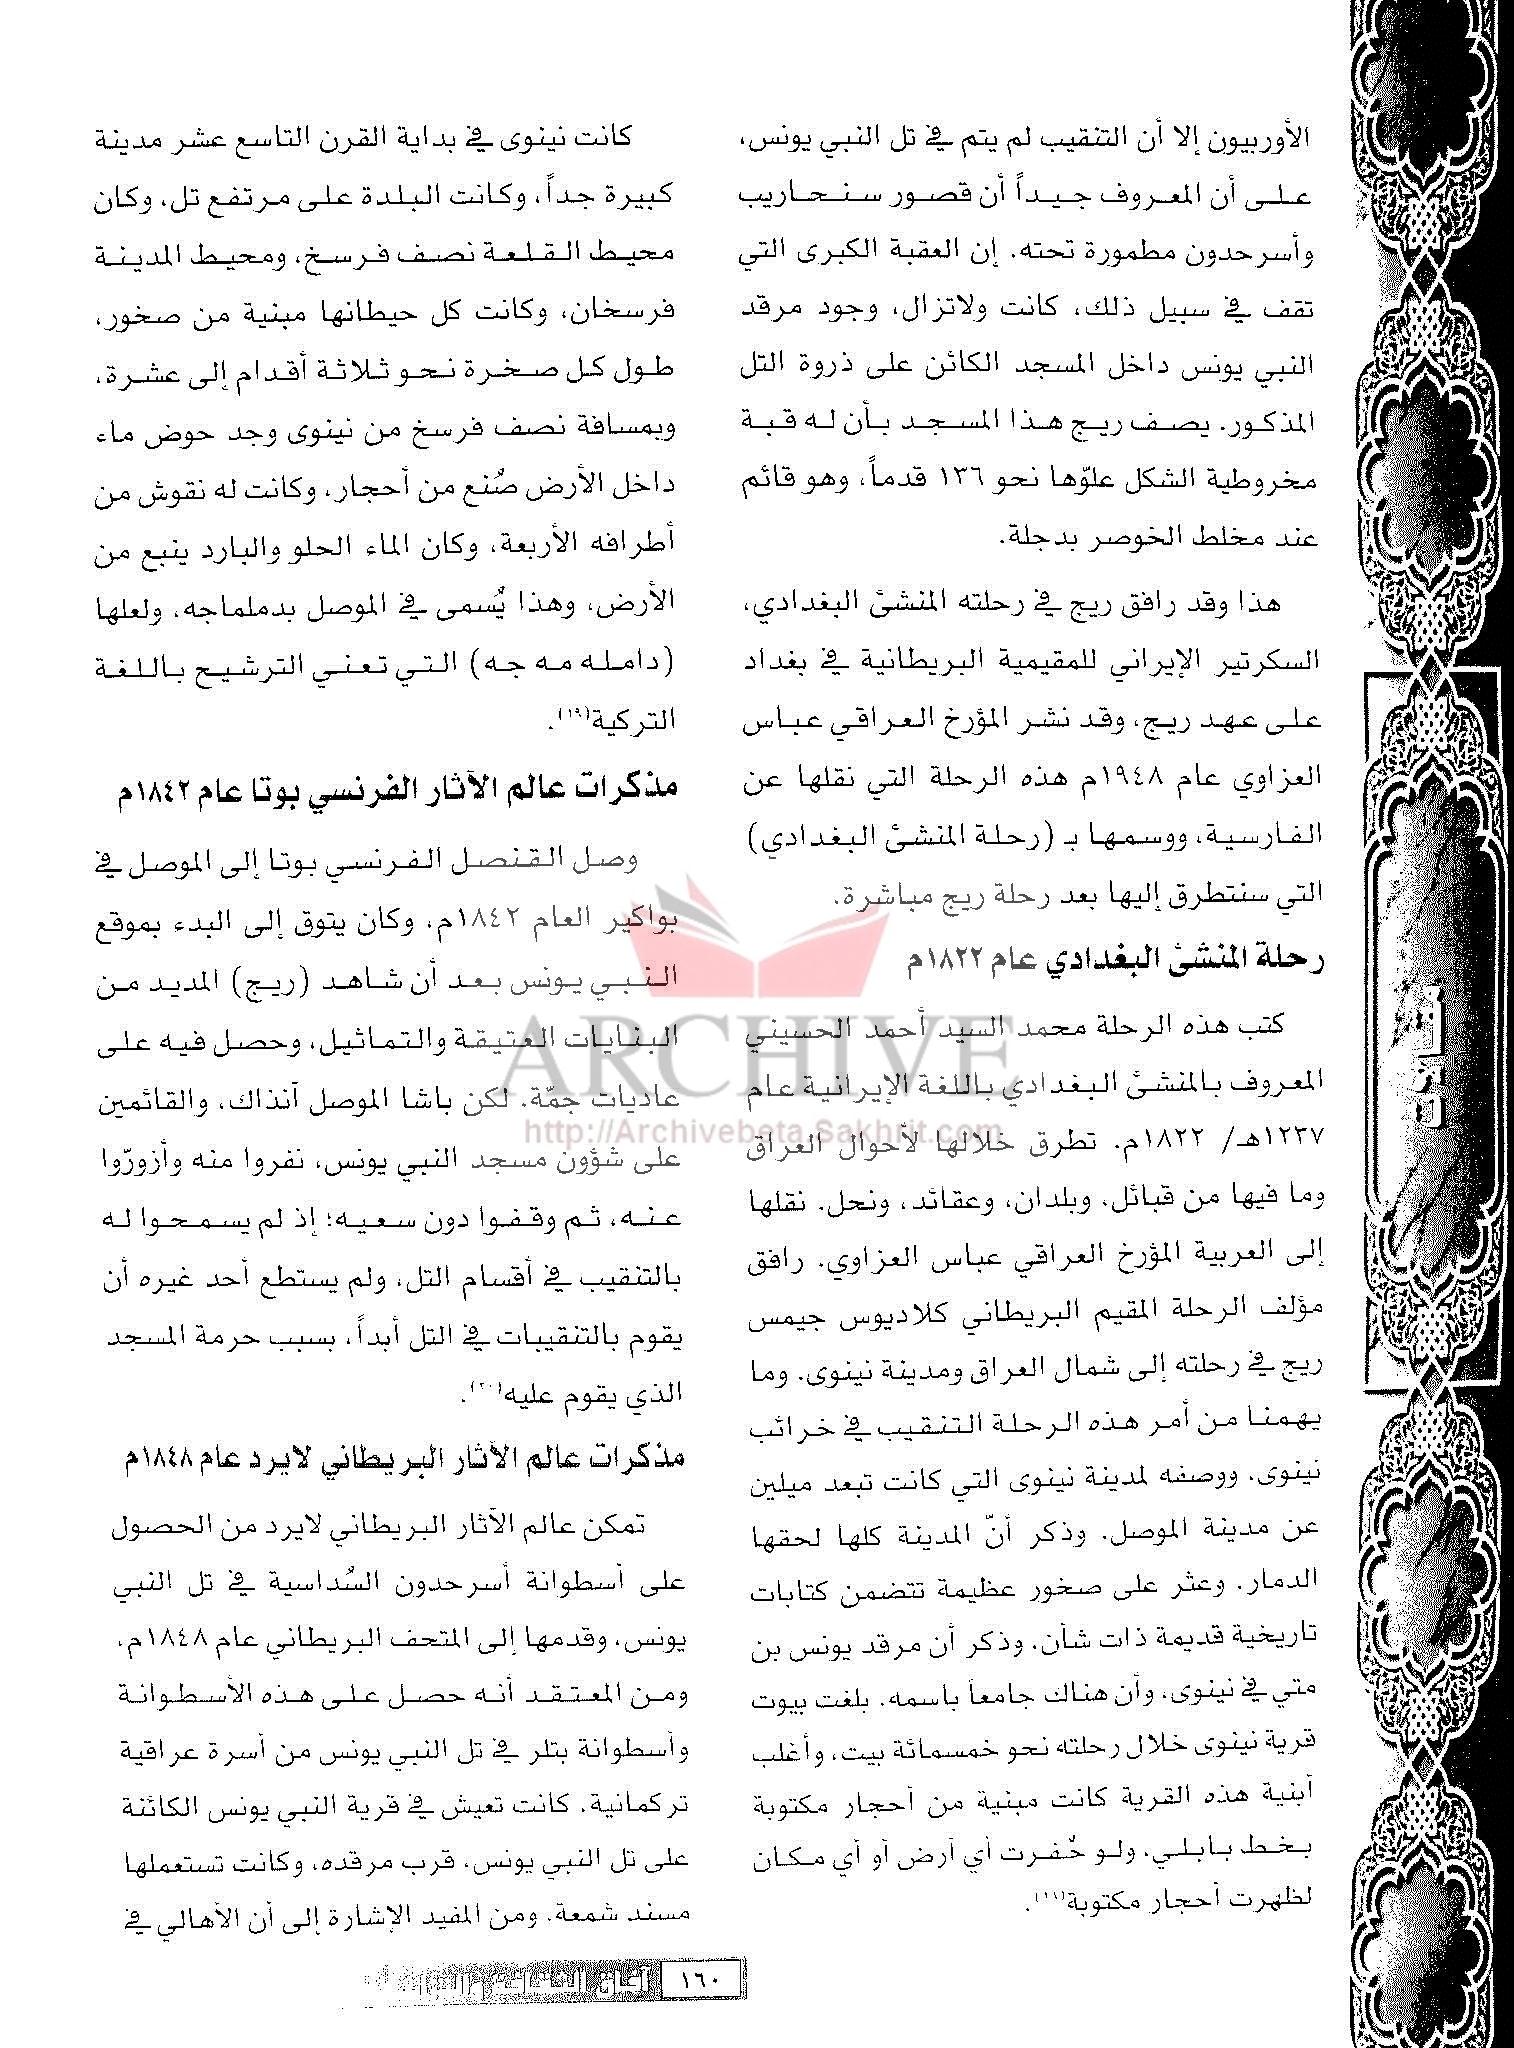 الأوربيون إلا أن التنقيب لم يتم في تل النبي يونس،
على أن المعروف جيداً أن قصور سنحاريب
وأسرحدون مطمورة تحته. إن العقبة الكبرى التي
تقف في سبيل ذلك، كانت ولاتزال، وجود مرقد
النبي يونس داخل المسجد الكائن على ذروة التل
المذكور. يصف ريج هذا المسجد بأن له قبة
مخروطية الشكل علوّها نحو ١٣٦ قدماً، وهو قائم
عند مخلط الخوصر بدجلة.
هذا وقد رافق ريج في رحلته المنشئ البغدادي،
السكرتير الإيراني للمقيمية البريطانية في بغداد
على عهد ريج، وقد نشر المؤرخ العراقي عباس
العزاوي عام ١٩٤٨م هذه الرحلة التي نقلها عن
الفارسية، ووسمها بـ (رحلة المنشئ البغدادي)
التي سنتطرق إليها بعد رحلة ريج مباشرة.
رحلة المنشئ البغدادي عام ١٨٢٢م
كتب هذه الرحلة محمد السيد أحمد الحسيني
المعروف بالمنشئ البغدادي باللغة الإيرانية عام
١٢٣٧هـ/ ١٨٢٢م. تطرق خلالها لأحوال العراق
وما فيها من قبائل، وبلدان، وعقائد، ونحل. نقلها
إلى العربية المؤرخ العراقي عباس العزاوي. رافق
مؤلف الرحلة المقيم البريطاني كلاديوس جيمس
ريج في رحلته إلى شمال العراق ومدينة نينوى. وما
يهمنا من أمر هذه الرحلة التنقيب في خرائب
نينوى. ووصفه لمدينة نينوى التي كانت تبعد ميلين
عن مدينة الموصل. وذكر أنّ المدينة كلها لحقها
الدمار. وعثر على صخور عظيمة تتضمن كتابات
تاريخية قديمة ذات شأن. وذكر أن مرقد يونس بن
متي في نينوى، وأن هناك جامعاً باسمه. بلغت بيوت
قرية نينوى خلال رحلته نحو خمسمائة بيت، وأغلب
أبنية هذه القرية كانت مبنية من أحجار مكتوبة
بخط بابلي، ولو حُفرت أي أرض أو أي مكان
لظهرت أحجار مكتوبة.
كانت نينوى في بداية القرن التاسع عشر مدينة
كبيرة جداً، وكانت البلدة على مرتفع تل، وكان
محيط القلعة نصف فرسخ، ومحيط المدينة
فرسخان، وكانت كل حيطانها مبنية من صخور،
طول كل صخرة نحو ثلاثة أقدام إلى عشرة،
وبمسافة نصف فرسخ من نينوى وجد حوض ماء
داخل الأرض صُنع من أحجار، وكانت له نقوش من
أطرافه الأربعة، وكان الماء الحلو والبارد ينبع من
الأرض، وهذا يُسمى في الموصل بدملماجه، ولعلها
(دامله مه جه) التي تعني الترشيح باللغة
التركية(١٩).
مذكرات عالم الآثار الفرنسي بوتا عام ١٨٤٢م
وصل القنصل الفرنسي بوتا إلى الموصل في
بواكير العام ١٨٤٢م، وكان يتوق إلى البدء بموقع
النبي يونس بعد أن شاهد (ريج) المديد من
البنايات العتيقة والتماثيل، وحصل فيه على
عاديات جمّة. لكن باشا الموصل آنذاك، والقائمين
على شؤون مسجد النبي يونس، نفروا منه وأزورّوا
عنه، ثم وقفوا دون سعيه؛ إذ لم يسمحوا له
بالتنقيب في أقسام التل، ولم يستطع أحد غيره أن
يقوم بالتنقيبات في التل أبداً، بسبب حرمة المسجد
الذي يقوم عليه(٢٠).
مذكرات عالم الآثار البريطاني لايرد عام ١٨٤٨م
تمكن عالم الآثار البريطاني لايرد من الحصول
على أسطوانة أسرحدون السُداسية في تل النبي
يونس، وقدمها إلى المتحف البريطاني عام ١٨٤٨م،
ومن المعتقد أنه حصل على هذه الأسطوانة
وأسطوانة بتلر في تل النبي يونس من أسرة عراقية
تركمانية، كانت تعيش في قرية النبي يونس الكائنة
على تل النبي يونس، قرب مرقده، وكانت تستعملها
مسند شمعة. ومن المفيد الإشارة إلى أن الأهالي في
مقالات
١٦٠ آفاق الثقافة والتراث
ARCHIVE
http://Archivebeta.Sakhrit.com